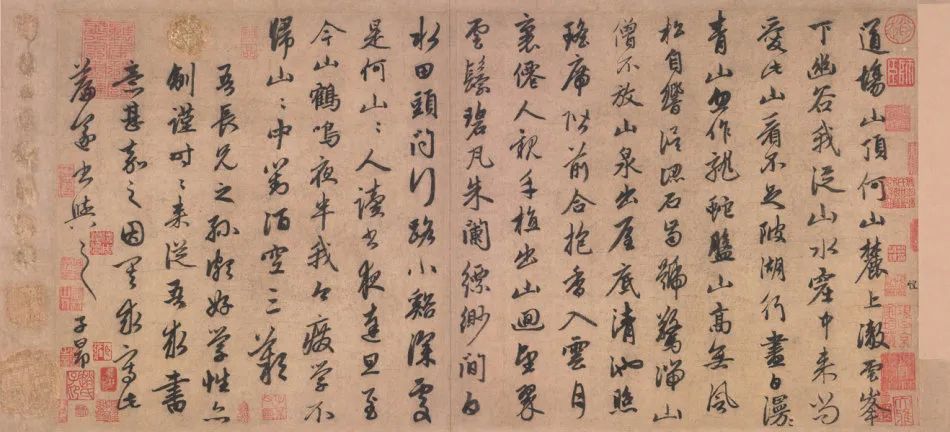 道場山頂何山麓上澈雲峯
下幽谷我從山水窟中來尚
愛此山看不足陂湖行盡白漫〻
青山忽作龍蛇盤山高無風
松自響誤認石齒號驚湍山
僧不放山泉出屋底清池照
瑤席階前合抱香入雲月
裏僊人親手植出山迴望翠
雲鬟碧瓦朱闌縹緲間白
水田頭問行路小谿深處
是何山〻人讀書夜達旦至
今山鶴鳴夜半我今廢學不
歸山〻中對酒空三歎
吾長兄之孫頗好學性亦
謹時〻來從吾求書
意甚嘉之因其求寫此
篇遂書與之 子昂